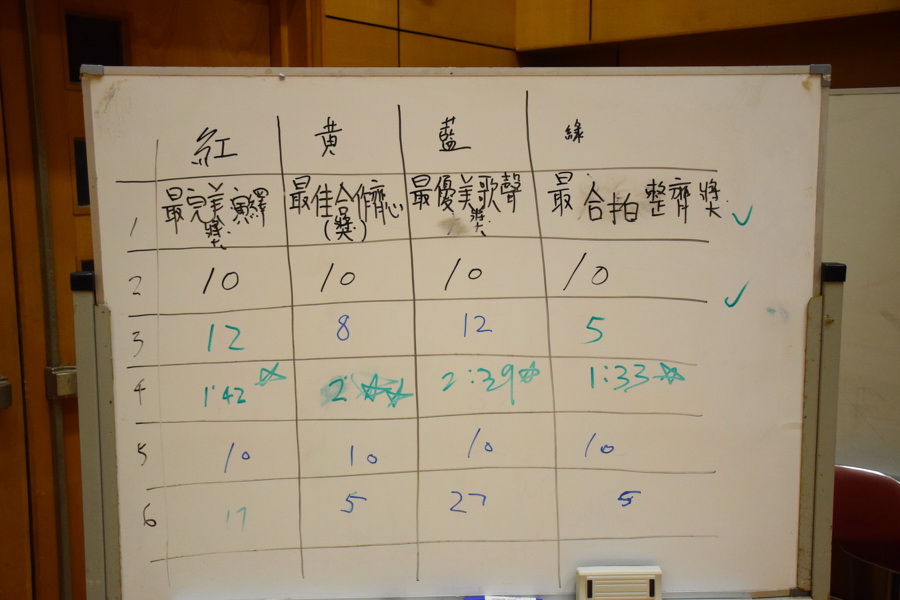 紅 黃 藍 綠
1 最完美演繹獎 最佳合作齊心(獎) 最優美歌聲獎 最合拍整齊獎 ✓
2 10 10 10 10 ✓
3 12 8 12 5
4 1:42 ☆ 2: ☆☆ 2:39 ☆ 1:33 ☆
5 10 10 10 10
6 17 5 27 5